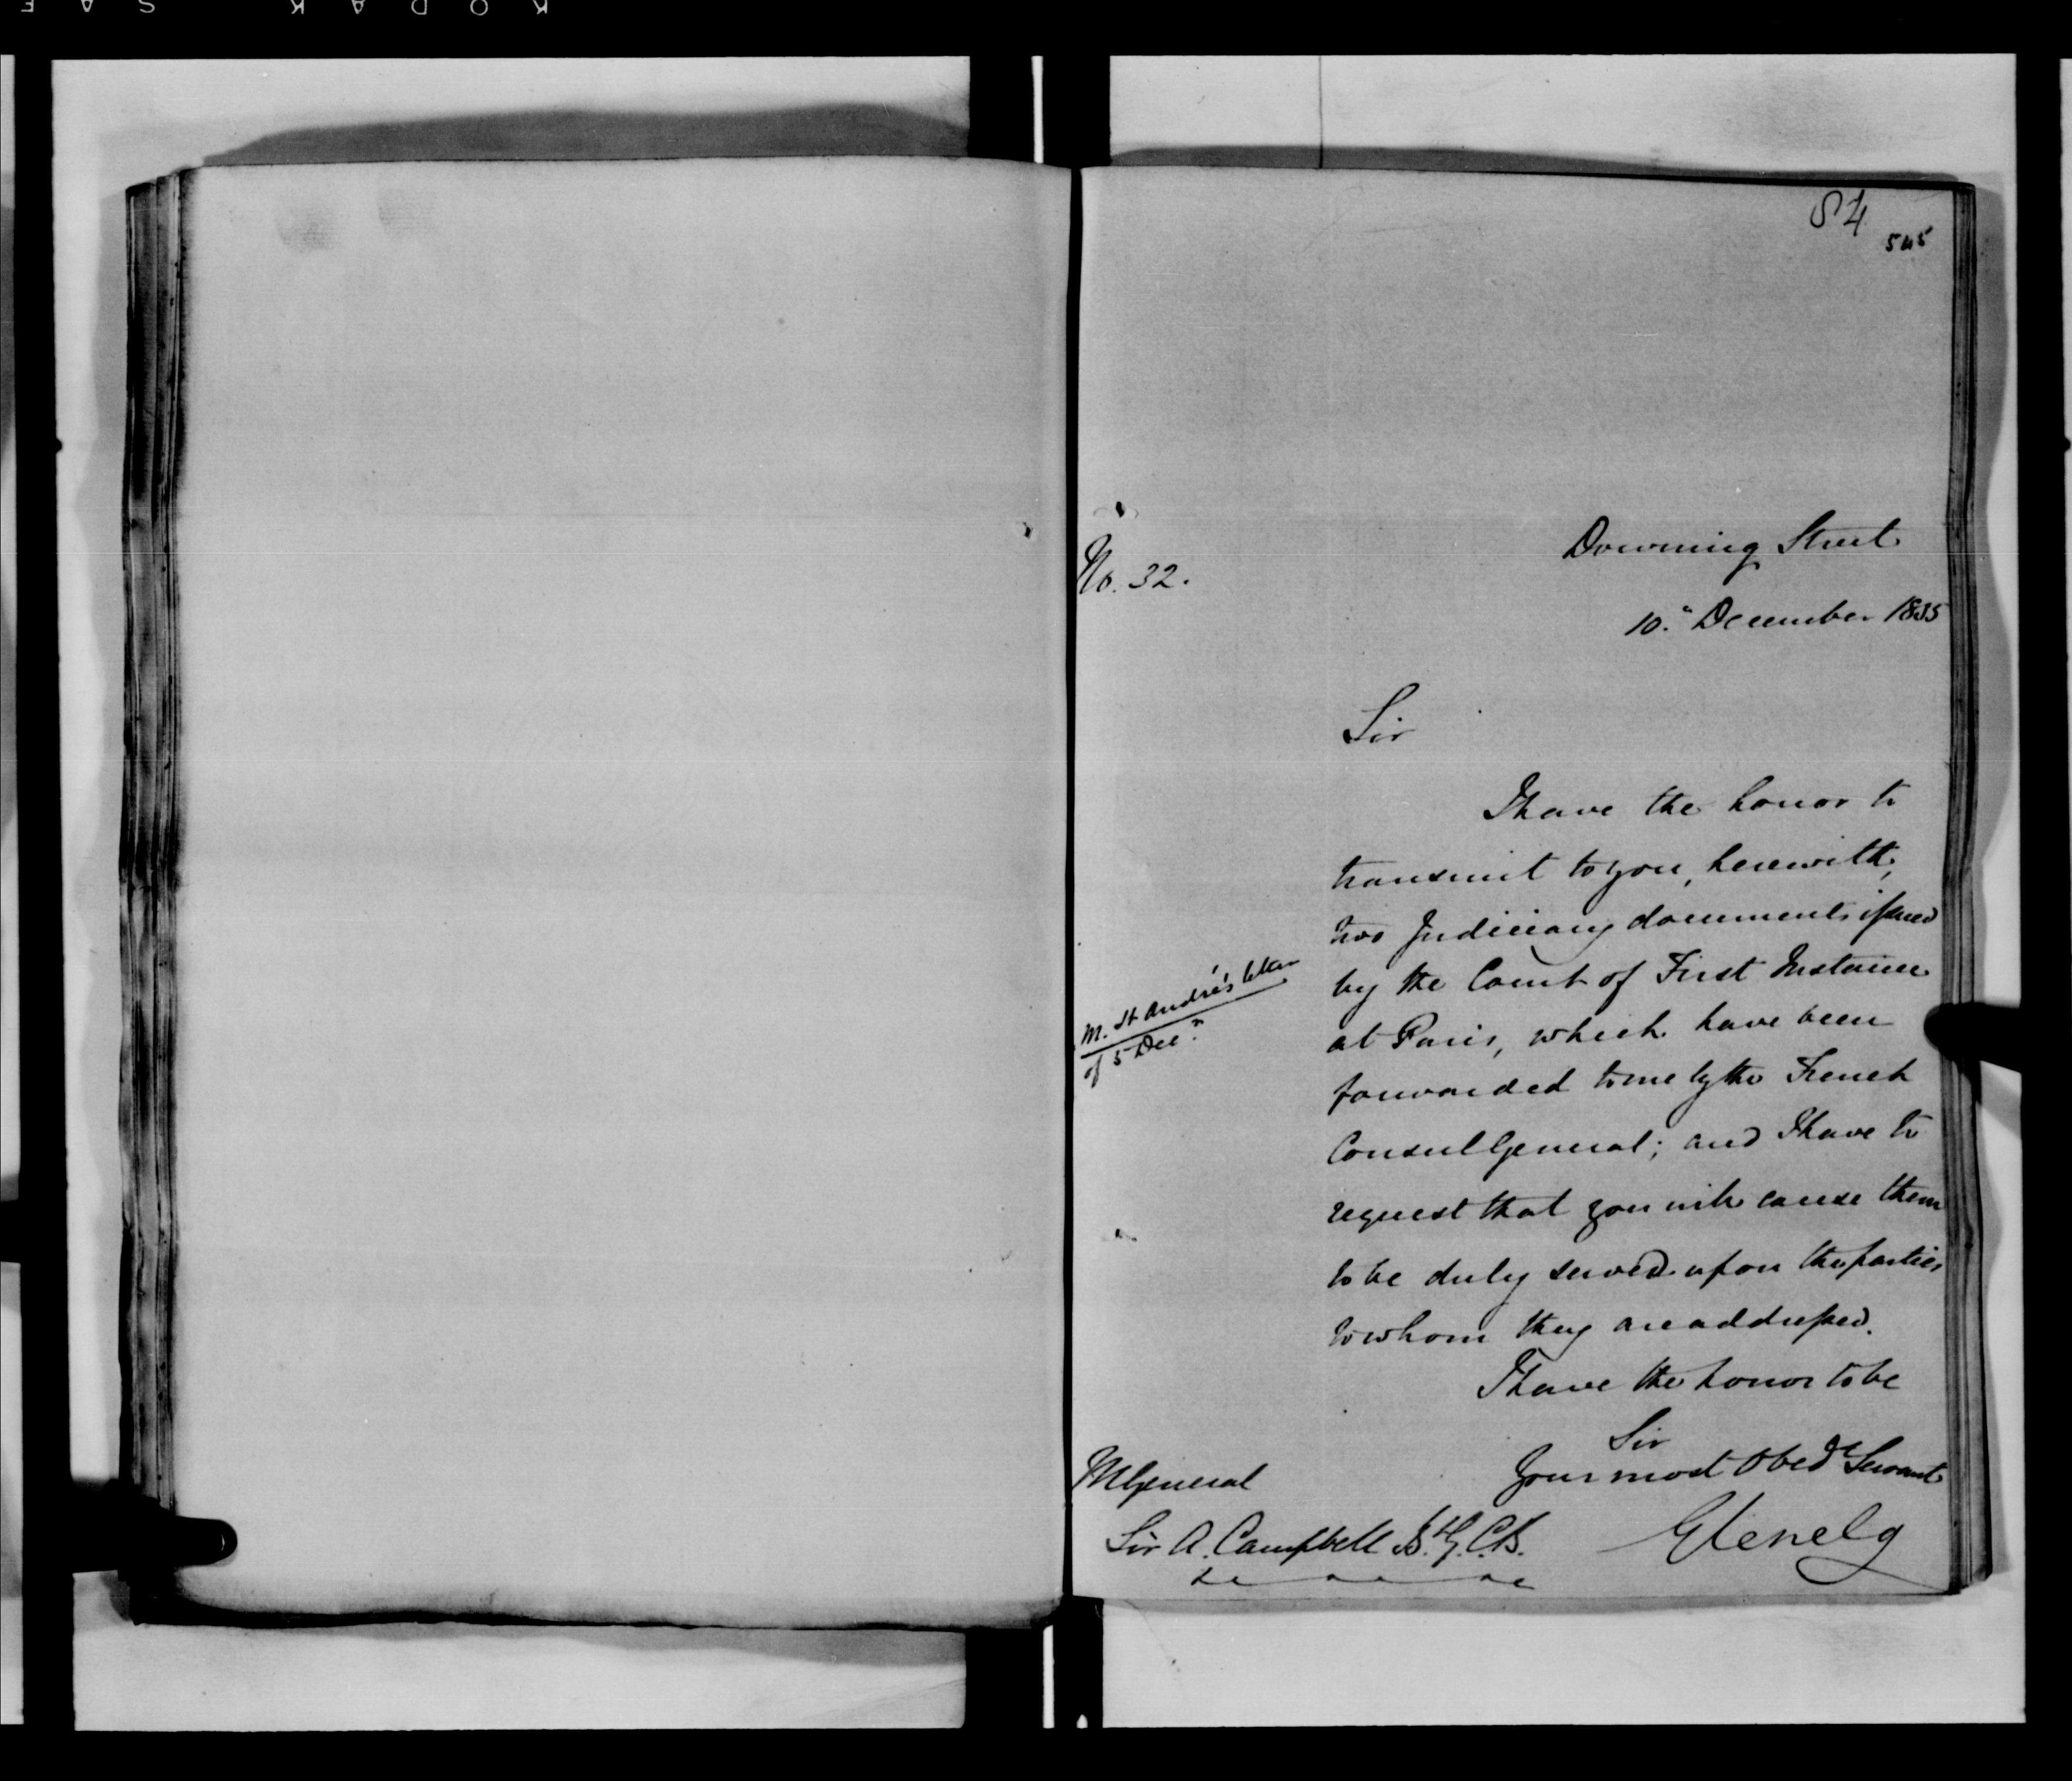 84
545
Downing Street
No. 32.
10. December 1835
Sir
I have the honor to
transmit to you, herewith,
two Judiciary documents issued
by the Court of First Instance
M. St André's letter
of 5 Decr
at Paris, which have been
forwarded to me by the French
Consul General; and I have to
request that you will cause them
to be duly served upon the parties
to whom they are addressed.
I have the honor to be
Sir
Your most Obedt Servant
Glenelg
MGeneral
Sir A. Campbell Bt G.C.B.